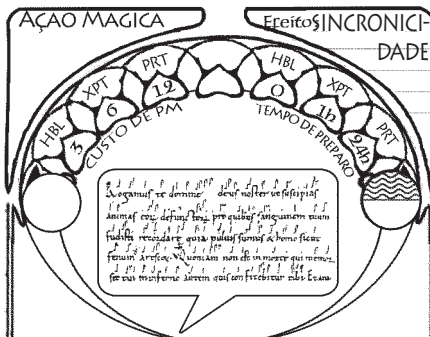 AÇAO MAGICA
Efeitos SINCRONICI-
DADE
HBL XPT PRT
3 6 12
CUSTO DE PM
HBL XPT PRT
0 1h 24h
TEMPO DE PREPARO
Rogamus te domine deus noster ut suscipias
animas pro quibus sanguinem tuum
fudisti recordare quia pulvis sumus & homo sicut
fenum veniam non est in morte qui memor
tui inferno autem quis confitebitur tibi